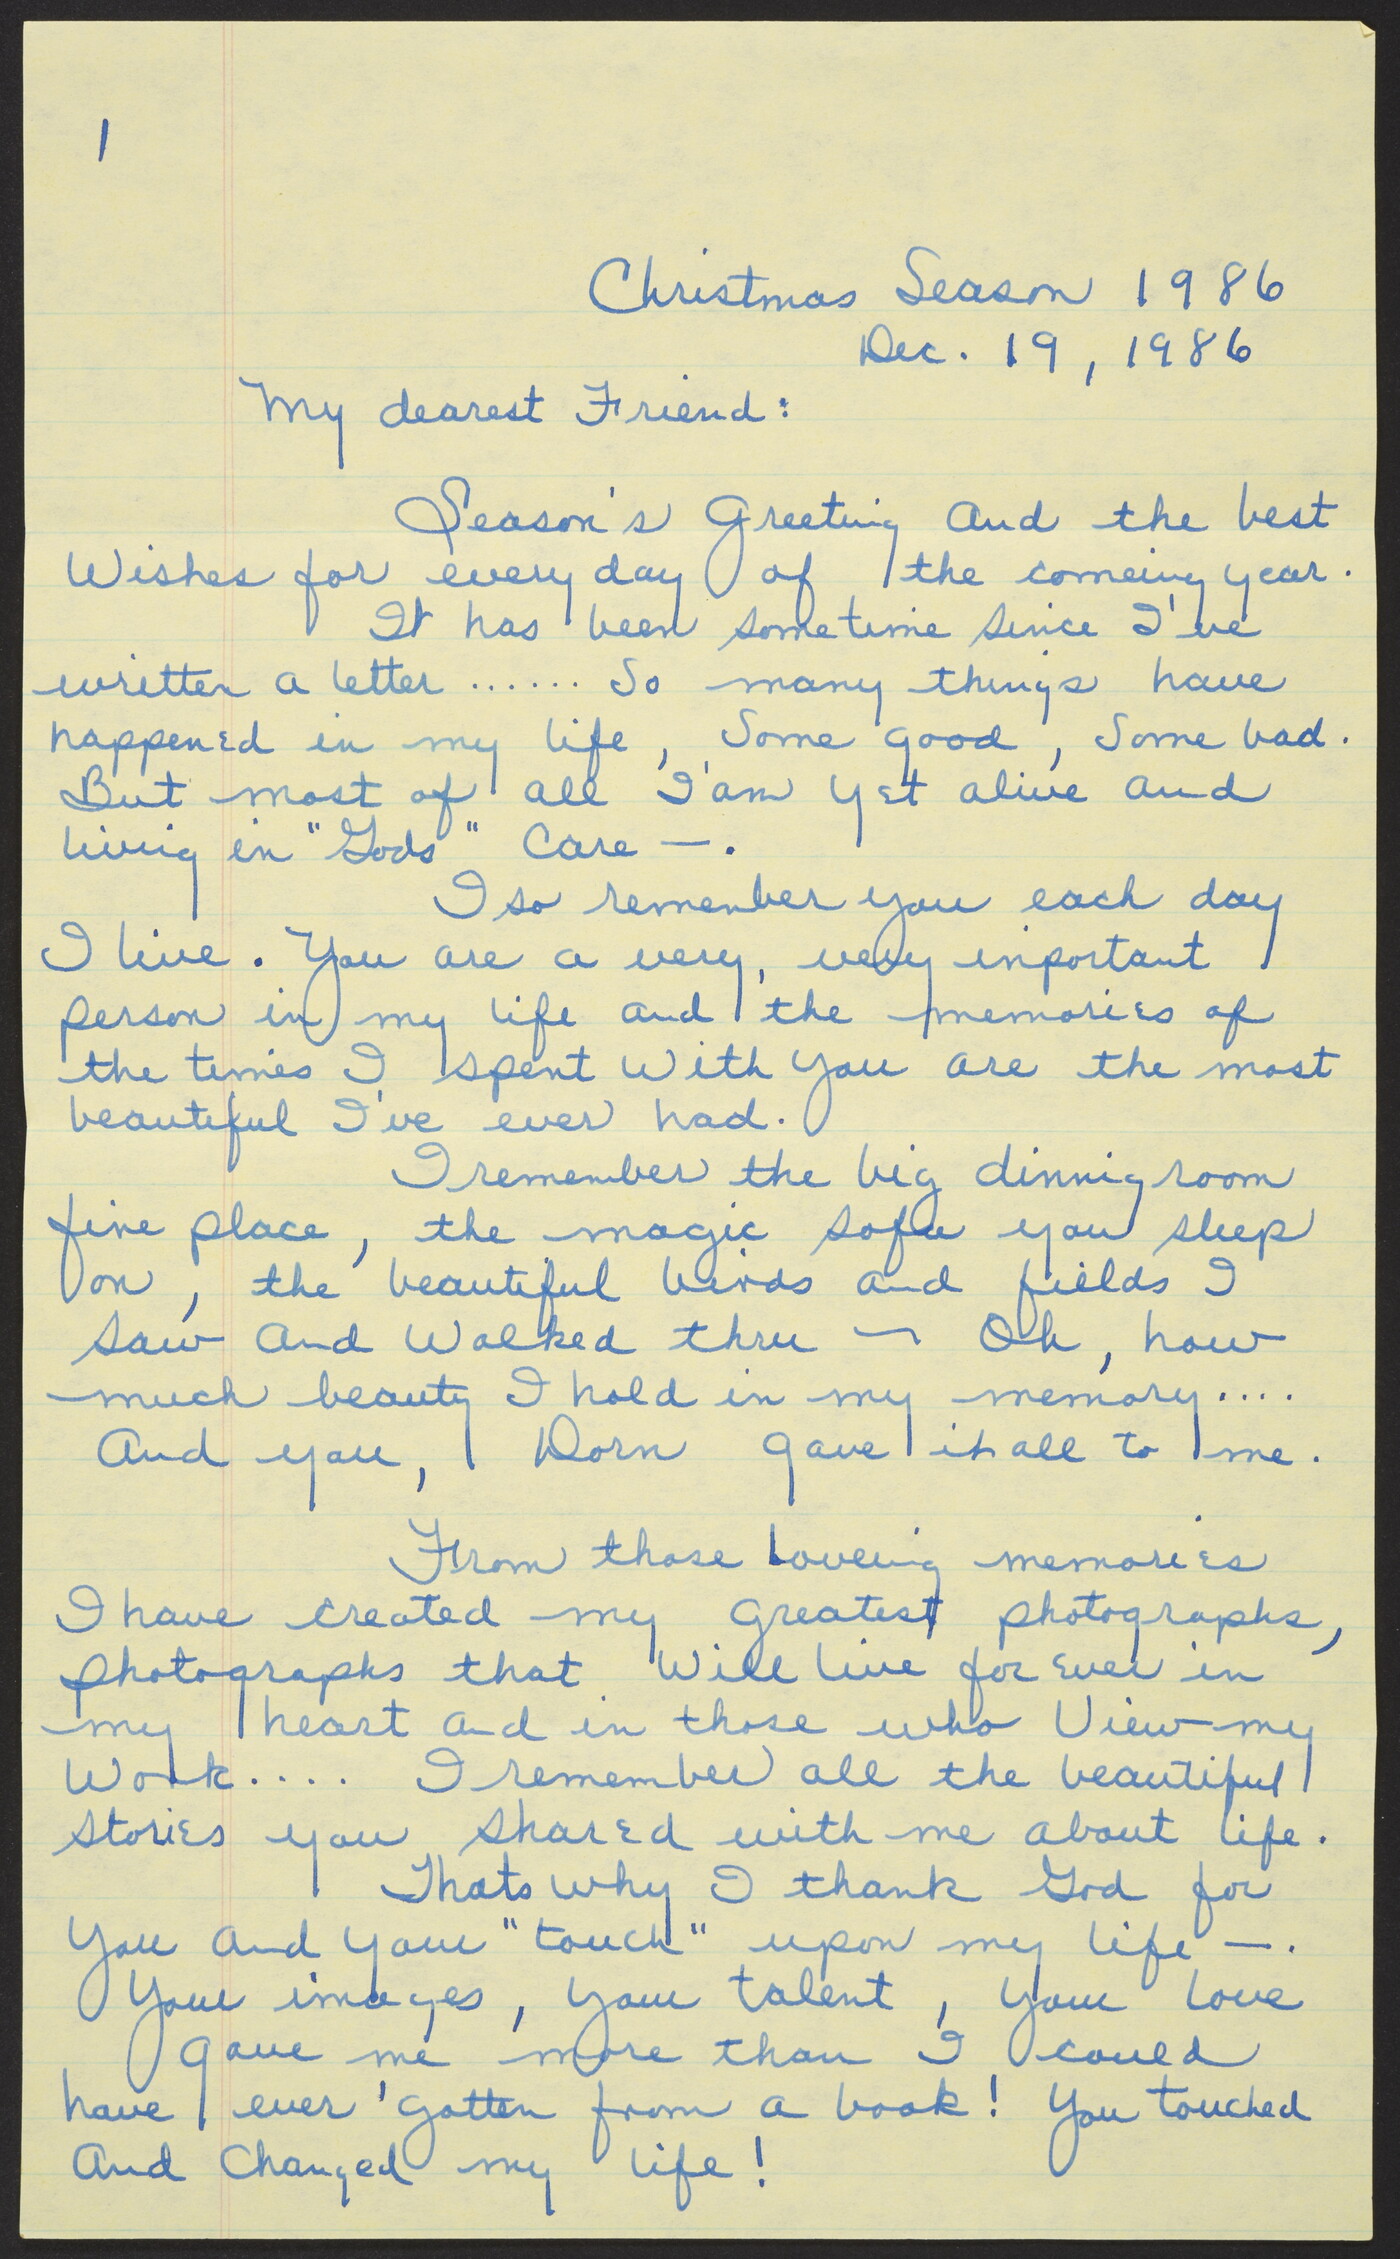 1
Christmas Season 1986
Dec. 19, 1986
My dearest Friend:
Season's Greeting and the best
Wishes for every day of the comeing year.
It has been sometime since I've
written a letter ...... So many things have
happened in my life, Some good, Some bad.
But most of all I'am yet alive and
living in "Gods" Care —.
I so remember you each day
I live. You are a very, very inportant
person in my life and the memories of
the times I spent with you are the most
beautiful I've ever had.
I remember the big dinnig room
fire place, the magic sofa you sleep
on, the beautiful birds and fields I
saw and walked thru — Oh, how
much beauty I hold in my memory....
And you, Dorn gave it all to me.
From those loveing memories
I have created my greatest photographs,
photographs that will live for ever in
my heart and in those who View my
Work.... I remember all the beautiful
stories you shared with me about life.
Thats why I thank God for
you and your "touch" upon my life —.
Your images, your talent, your love
gave me more than I could
have ever gotten from a book! You touched
And Changed my life!